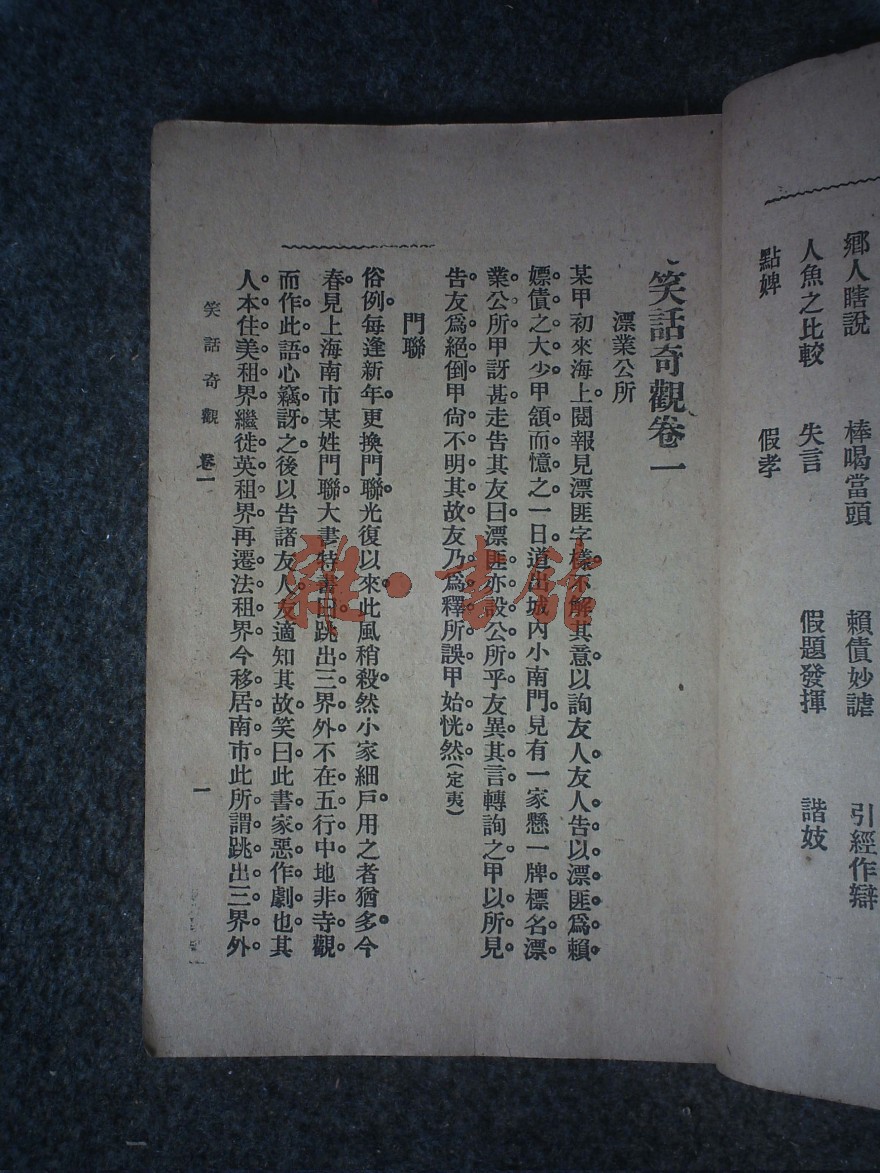 鄉人瞎說　棒喝當頭　賴債妙謔　引經作辯
人魚之比較　失言　假題發揮　諧妓
點婢　假孝
笑話奇觀卷一
漂業公所
某甲初來海上。閱報見漂匪字樣不解其意以詢友人。友人告以漂匪爲賴
嫖債之大少。甲頷而憶之。一日道出城內小南門。見有一家懸一牌標名漂
業公所。甲訝甚。走告其友曰。漂匪亦設公所乎。友異其言。轉詢之。甲以所見
告。友爲絕倒。甲尙不明其故。友乃爲釋所誤。甲始恍然。(定夷)
門聯
俗例。每逢新年。更換門聯。光復以來。此風稍殺。然小家細戶。用之者猶多。今
春。見上海南市某姓門聯。大書特書曰。跳出三界外。不在五行中。地非寺觀。
而作此語。心竊訝之。後以告諸友人。友適知其故。笑曰。此書家惡作劇也。其
人本住美租界。繼徙英租界。再遷法租界。今移居南市。此所謂跳出三界外。
笑話奇觀　卷一　一
雜·書館